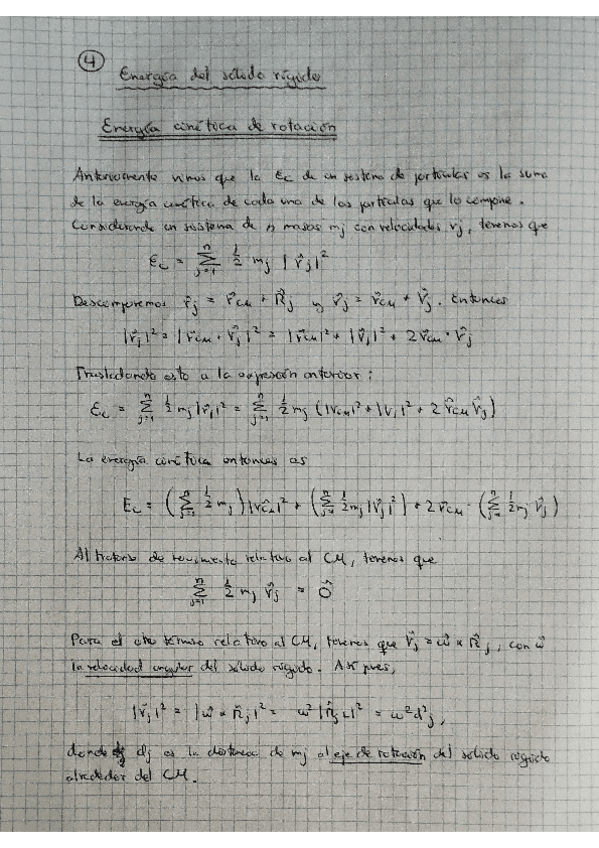 4
Energía del sólido rígido
Energía cinética de rotación
Anteriormente vimos que la Ec de un sistema de partículas es la suma
de la energía cinética de cada una de las partículas que lo compone.
Considerando un sistema de n masas mj con velocidades vj, tenemos que
Ec = Σ_{j=1}^{n} 1/2 mj |v⃗j|²
Descomponemos r⃗j = r⃗CM + R⃗j y v⃗j = v⃗CM + V⃗j. Entonces
|v⃗j|² = |v⃗CM + V⃗j|² = |v⃗CM|² + |V⃗j|² + 2 v⃗CM · V⃗j
Trasladando esto a la expresión anterior:
Ec = Σ_{j=1}^{n} 1/2 mj |v⃗j|² = Σ_{j=1}^{n} 1/2 mj (|vCM|² + |Vj|² + 2 v⃗CM V⃗j)
La energía cinética entonces es
Ec = (Σ_{j=1}^{n} 1/2 mj) |v⃗CM|² + (Σ_{j=1}^{n} 1/2 mj |V⃗j|²) + 2 v⃗CM · (Σ_{j=1}^{n} 1/2 mj V⃗j)
Al tratarse de movimiento relativo al CM, tenemos que
Σ_{j=1}^{n} 1/2 mj V⃗j = 0⃗
Para el otro término relativo al CM, tenemos que V⃗j = ω⃗ × R⃗j, con ω⃗
la velocidad angular del sólido rígido. Así pues,
|V⃗j|² = |ω⃗ × R⃗j|² = ω² |R⃗j⊥|² = ω² d²j,
donde dj es la distancia de mj al eje de rotación del sólido rígido
alrededor del CM.